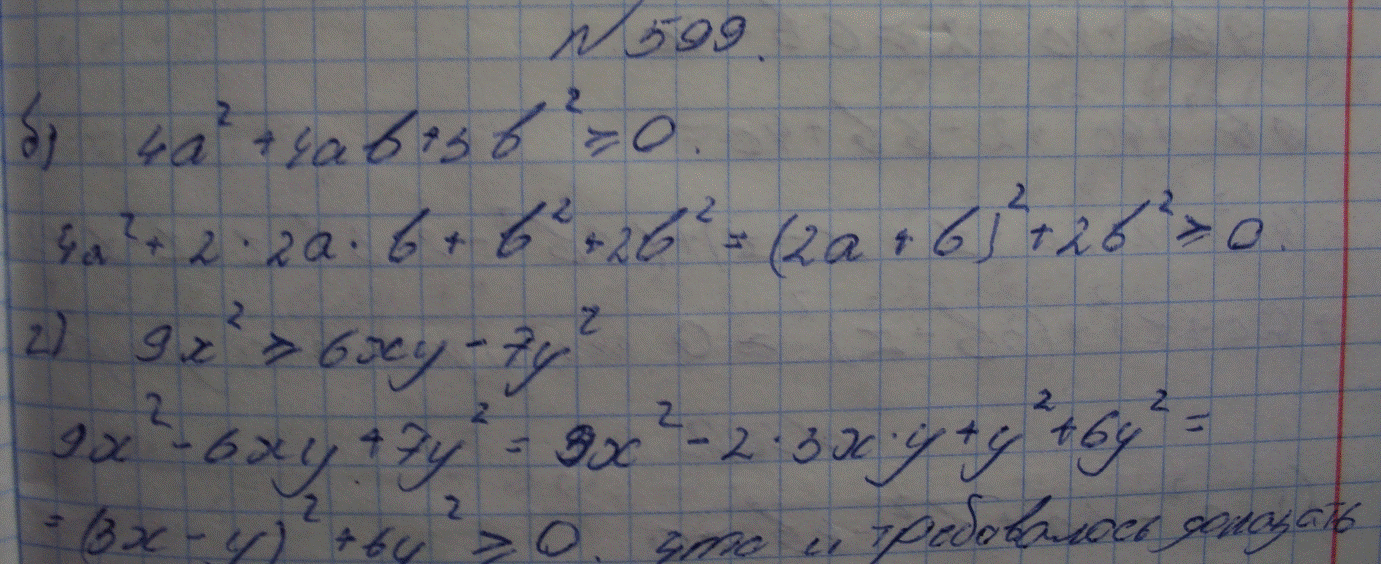 № 599.
б) 4a² + 4ab + 3b² ≥ 0.
4a² + 2 · 2a · b + b² + 2b² = (2a + b)² + 2b² ≥ 0.
г) 9x² ≥ 6xy - 7y²
9x² - 6xy + 7y² = 9x² - 2 · 3x · y + y² + 6y² =
= (3x - y)² + 6y² ≥ 0. что и требовалось доказать